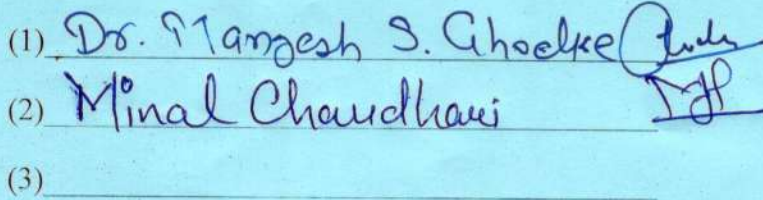 (1) Dr. Mangesh S. Ghodke
(2) Minal Chaudhari
(3)